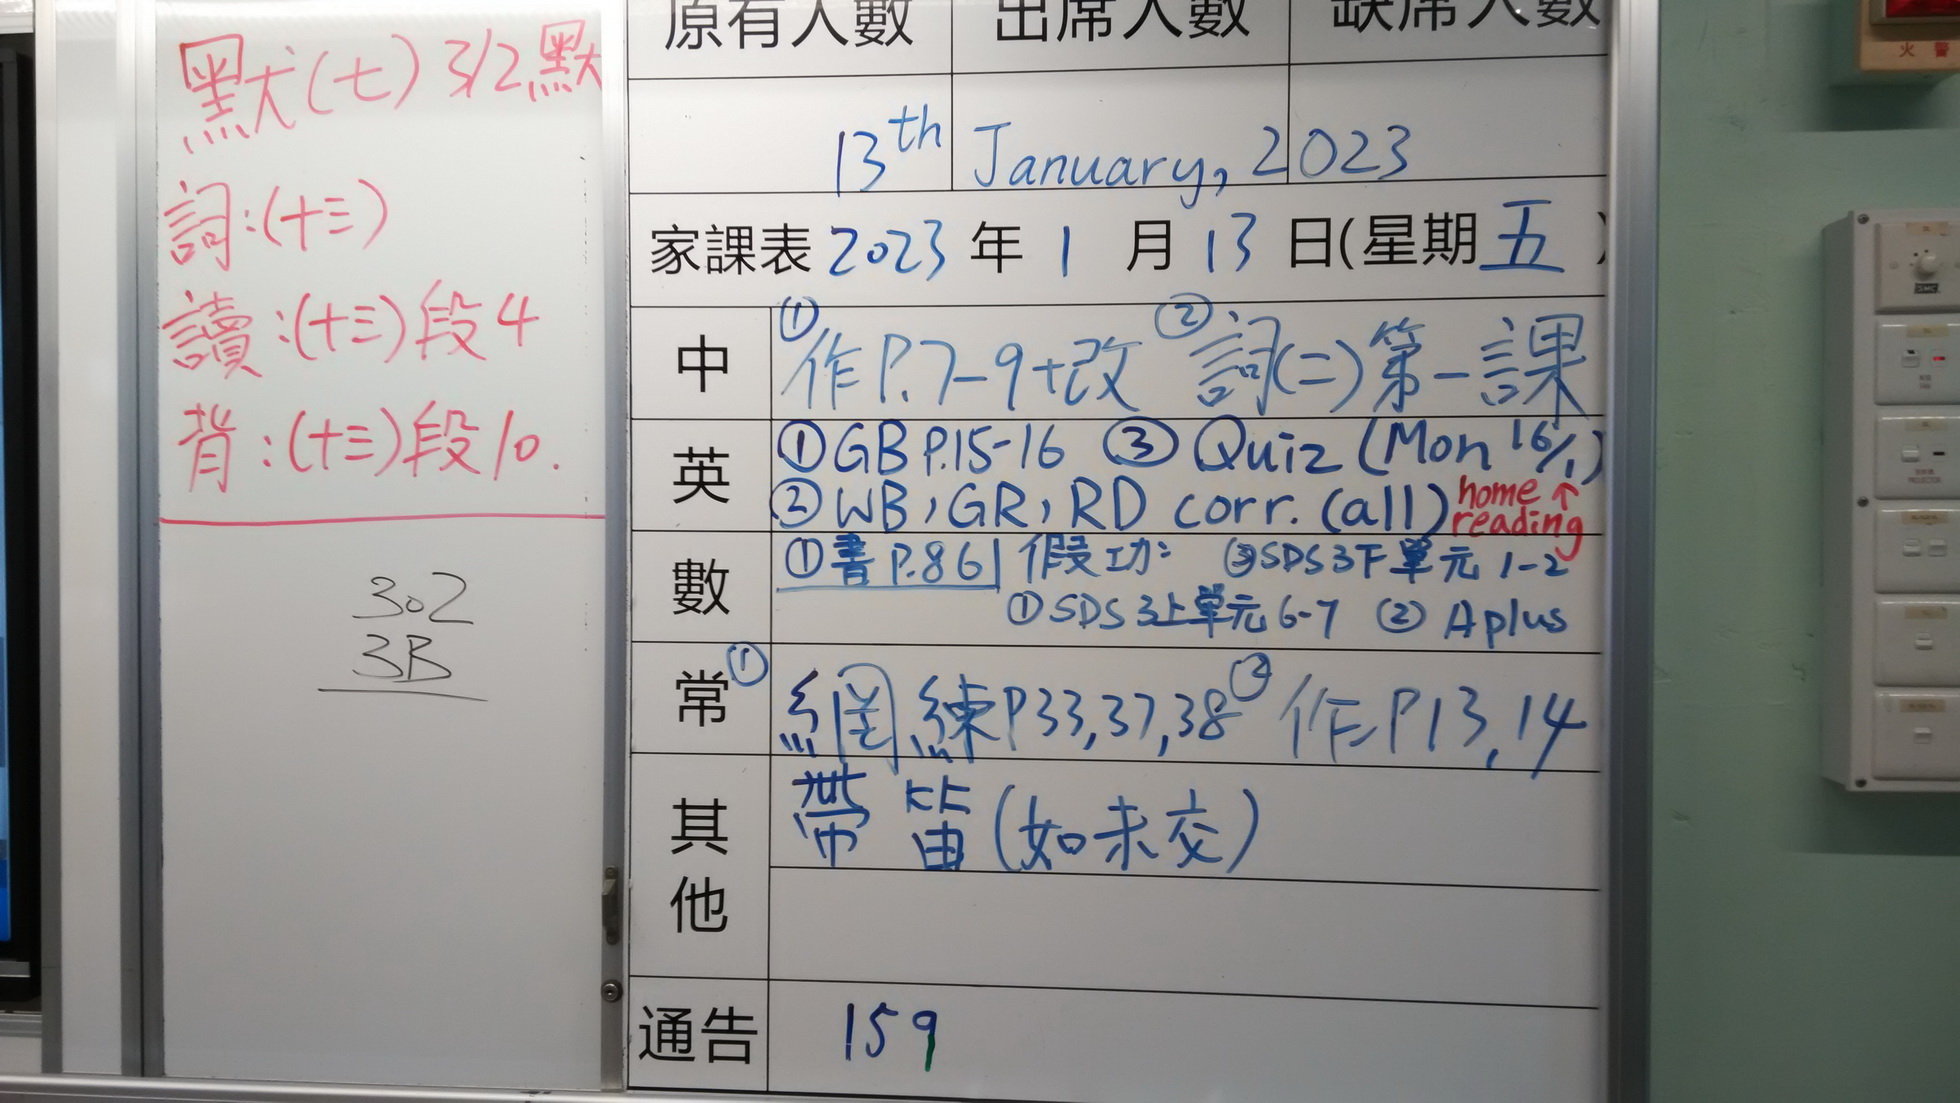 默(七) 3/2默
詞:(十三)
讀:(十三)段4
背:(十三)段10.
302
3B
原有人數 出席人數 缺席人數
13th January, 2023
家課表 2023 年 1 月 13 日(星期五)
中 ①作P.7-9+改 ②詞(二)第一課
英 ①GB P.15-16 ③Quiz (Mon 16/1)
②WB,GR,RD corr. (all) home reading ↑
數 ①書P.86 假功: ③SDS3下單元1-2
①SDS 3上單元6-7 ②Aplus
常 ①網練P33,37,38 ②作P13,14
其他 帶 (如未交)
通告 159
火警